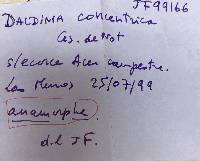 JF99166
DALDINIA concentrica
Ces. de Not
s/écorce Acer campestre.
Las Muros 25/07/99
anamorphe
d.l JF.